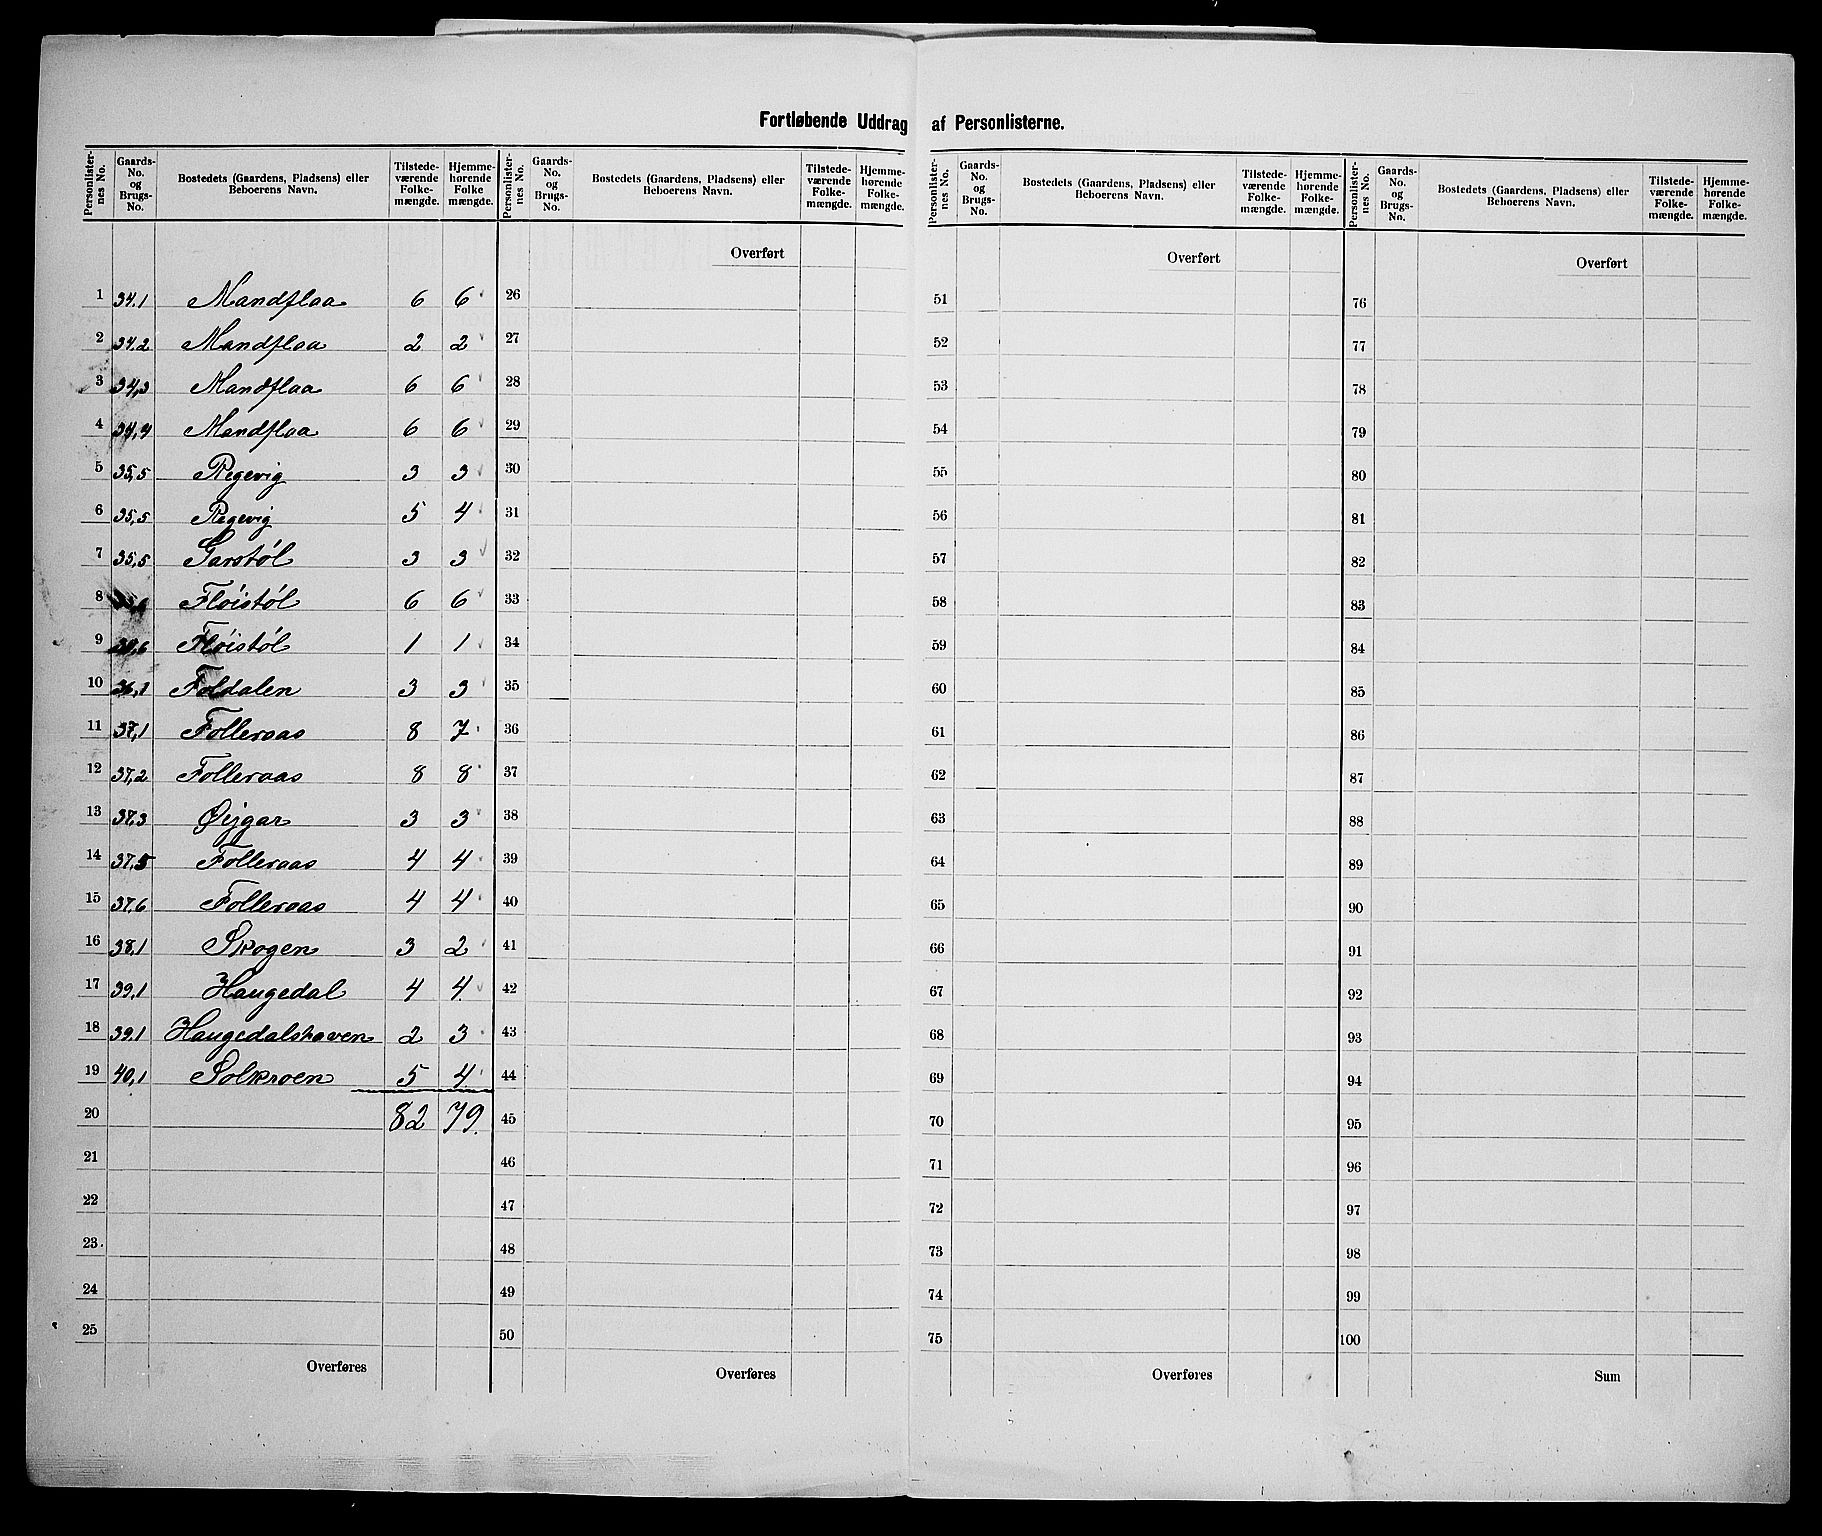 Fortløbende Uddrag af Personlisterne.
Personlisternes No. | Gaards-No. og Brugs-No. | Bostedets (Gaardens, Pladsens) eller Beboerens Navn. | Tilstedeværende Folkemængde. | Hjemmehørende Folke mængde. | Personlisternes No. | Gaards-No. og Brugs-No. | Bostedets (Gaardens, Pladsens) eller Beboerens Navn. | Tilstedeværende Folkemængde. | Hjemmehørende Folkemængde. | Personlisternes No. | Gaards-No. og Brugs-No. | Bostedets (Gaardens, Pladsens) eller Beboerens Navn. | Tilstedeværende Folkemængde. | Hjemmehørende Folkemængde. | Personlisternes No. | Gaards-No. og Brugs-No. | Bostedets (Gaardens, Pladsens) eller Beboerens Navn. | Tilstedeværende Folkemængde. | Hjemmehørende Folkemængde.
Overført Overført Overført
1 34.1 Mandflaa 6 6 26 51 76
2 34.2 Mandflaa 2 2 27 52 77
3 34,3 Mandflaa 6 6 28 53 78
4 34,4 Mandflaa 6 6 29 54 79
5 35,5 Regevig 3 3 30 55 80
6 35,5 Regevig 5 4 31 56 81
7 35,5 Garstøl 3 3 32 57 82
8 Fløistøl 6 6 33 58 83
9 Fløistøl 1 1 34 59 84
10 36,1 Foldalen 3 3 35 60 85
11 37,1 Folleraas 8 7 36 61 86
12 37,2 Folleraas 8 8 37 62 87
13 37.3 Øijgar 3 3 38 63 88
14 37,5 Folleraas 4 4 39 64 89
15 37.6 Folleraas 4 4 40 65 90
16 38,1 Skogen 3 2 41 66 91
17 39,1 Haugedal 4 4 42 67 92
18 39.1 Haugedalshaven 2 3 43 68 93
19 40,1 Solkroen 5 4 44 69 94
20 82 79. 45 70 95
21 46 71 96
22 47 72 97
23 48 73 98
24 49 74 99
25 50 75 100
Overføres Overføres Overføres Sum